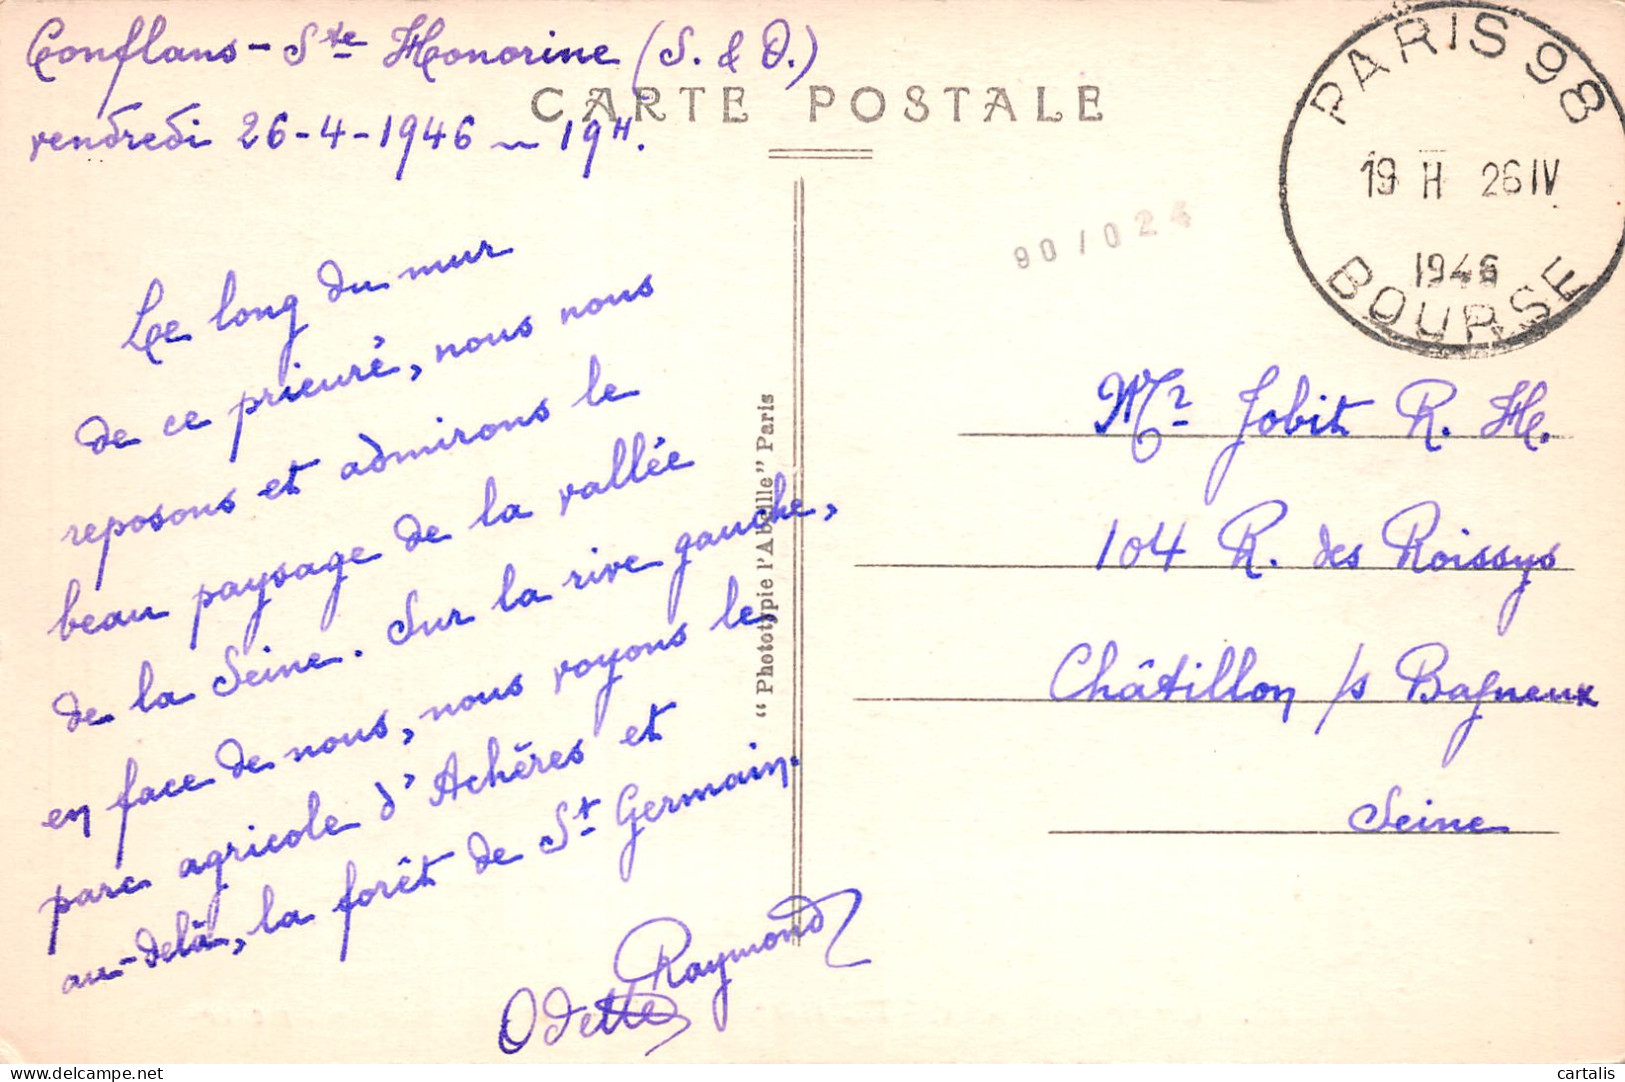 Conflans-Ste Honorine (S. & O.)
vendredi 26-4-1946 ~ 19H.
CARTE POSTALE
PARIS 98
19 H 26 IV
1946
BOURSE
90/024
Le long du mur
de ce prieuré, nous nous
reposons et admirons le
beau paysage de la vallée
de la Seine. Sur la rive gauche,
en face de nous, nous voyons le
parc agricole d'Achères et
au-delà, la forêt de St Germain.
Raymond
Odette
"Phototypie l'Abeille" Paris
Mr Jobit R. H.
104 R. des Roissys
Châtillon /s Bagneux
Seine
delcampe.net
cartalis